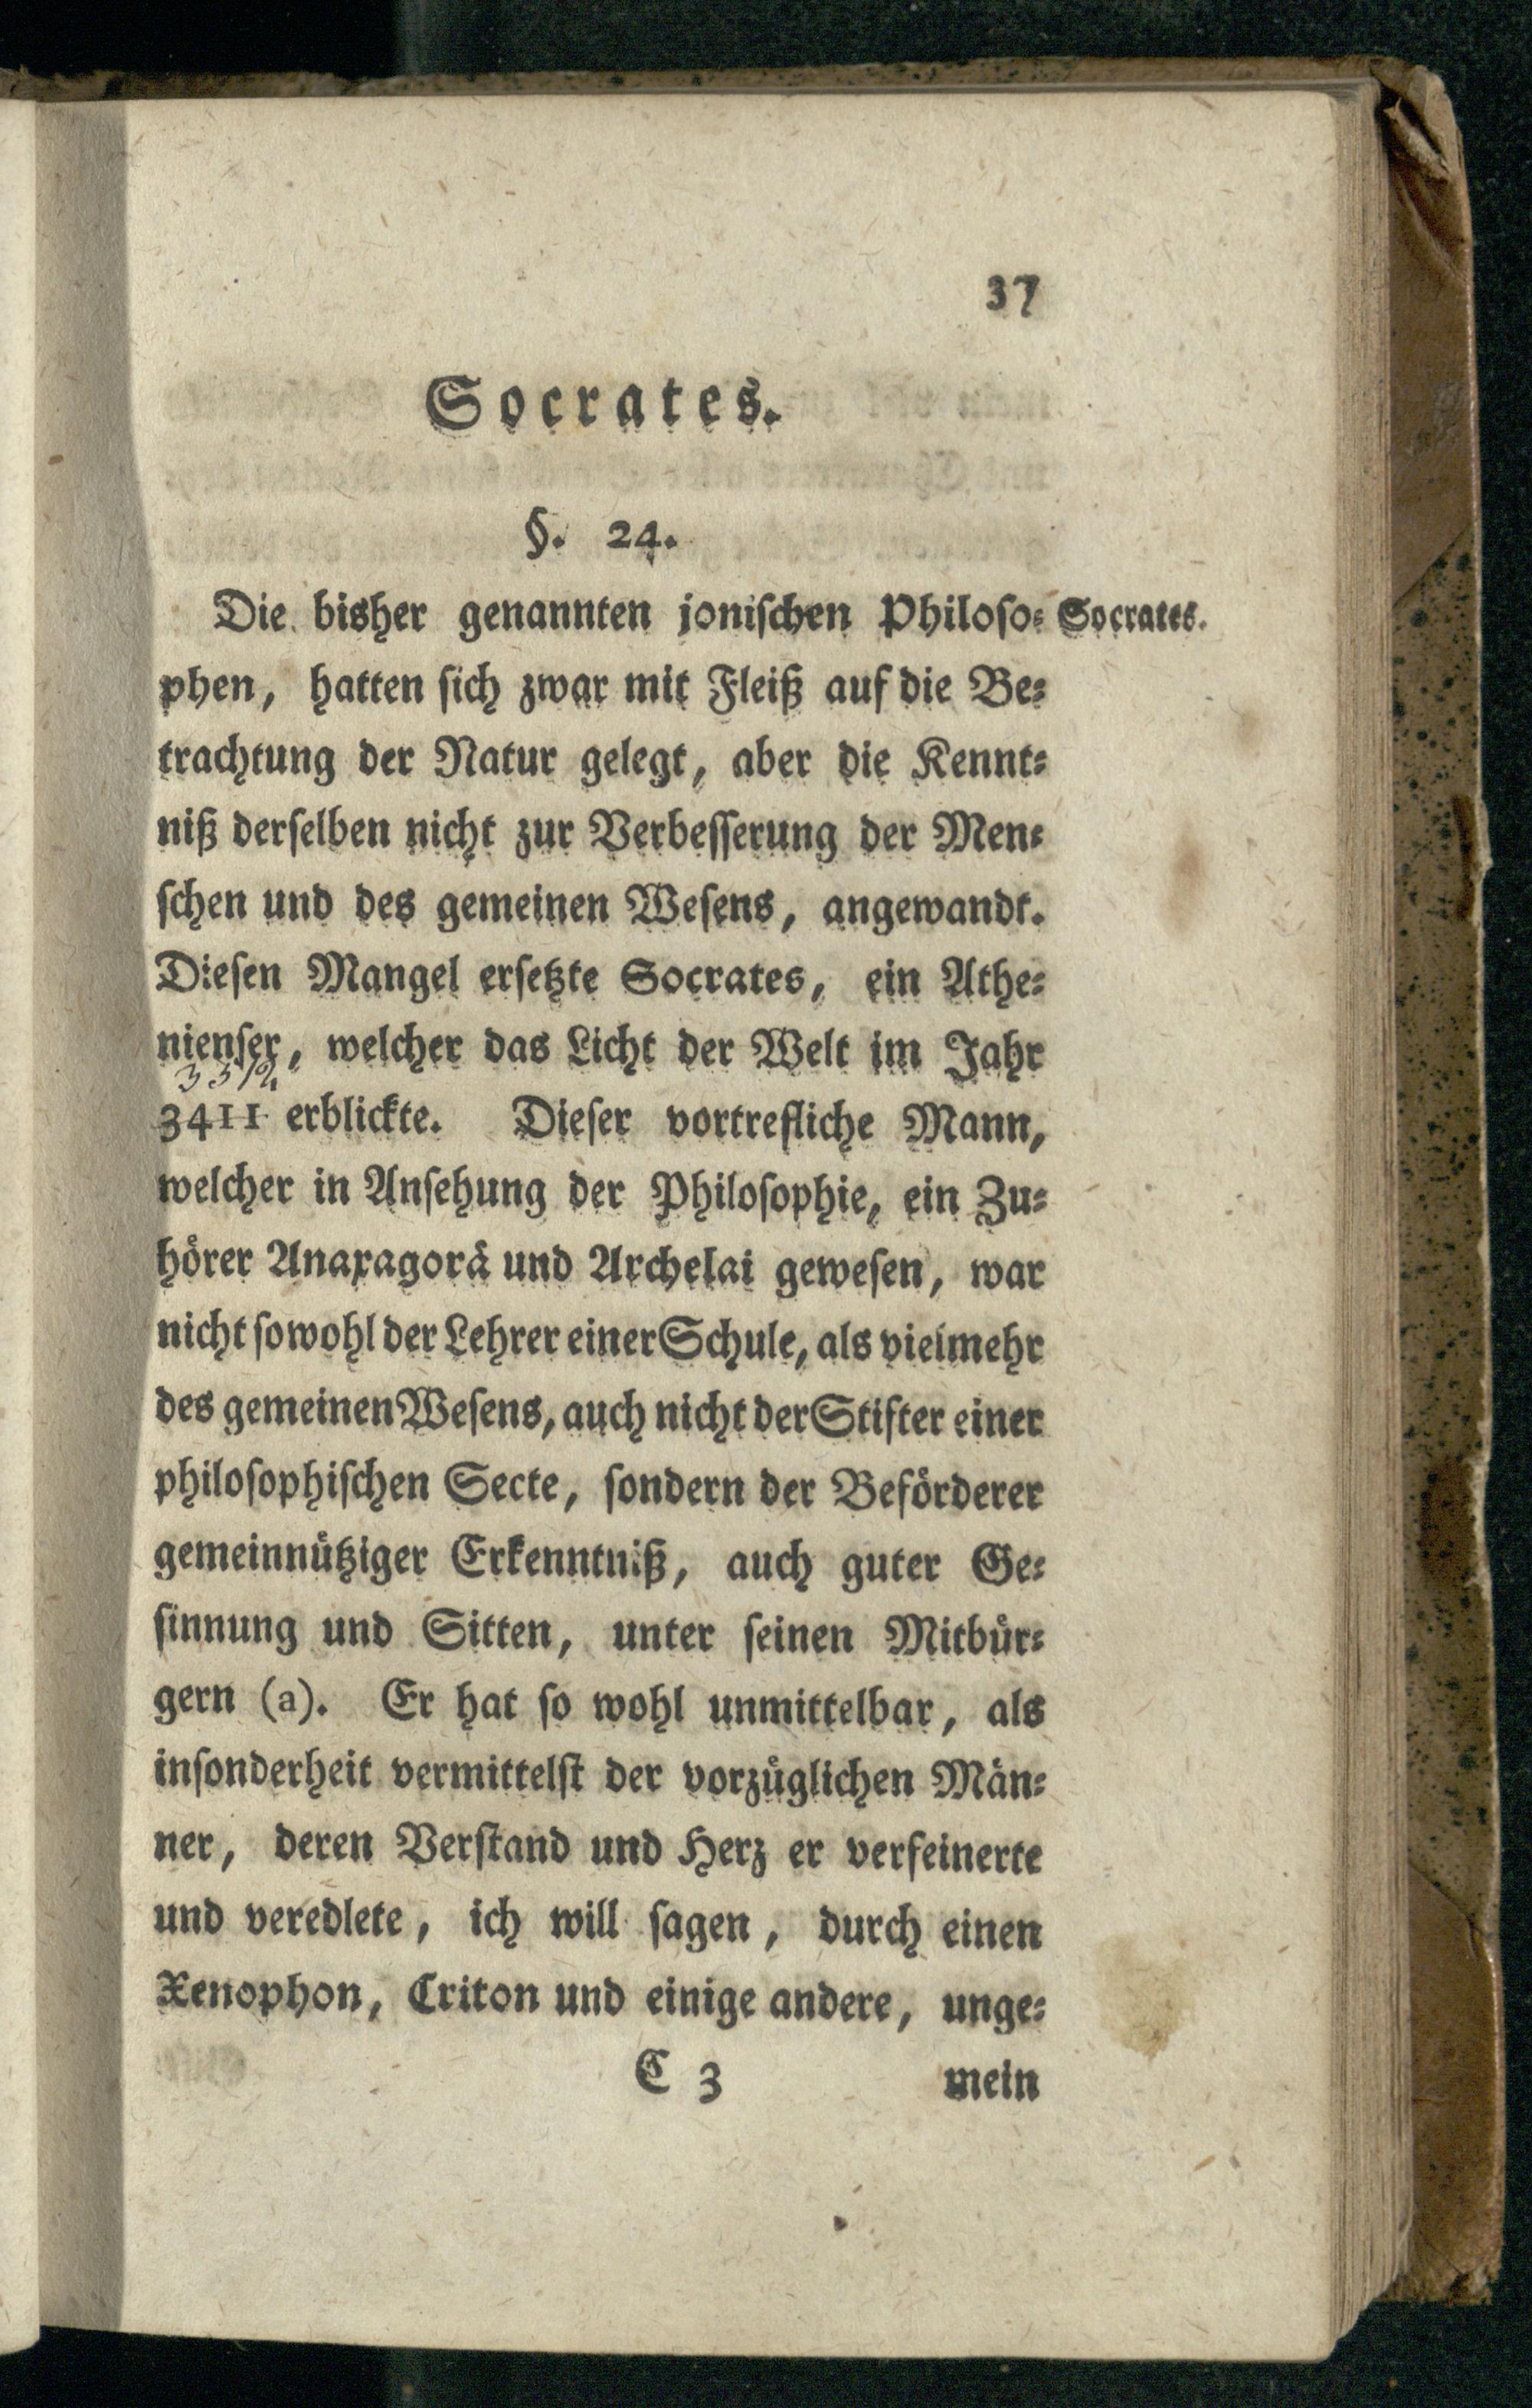 37
Socrates.
§. 24.
Die bisher genannten jonischen Philoso⸗ Socrates.
phen, hatten sich zwar mit Fleiß auf die Be⸗
trachtung der Natur gelegt, aber die Kennt⸗
niß derselben nicht zur Verbesserung der Men⸗
schen und des gemeinen Wesens, angewandt.
Diesen Mangel ersetzte Socrates, ein Athe⸗
nienser, welcher das Licht der Welt im Jahr
3411 erblickte. Dieser vortrefliche Mann,
welcher in Ansehung der Philosophie, ein Zu⸗
hörer Anaxagorä und Archelai gewesen, war
nicht sowohl der Lehrer einer Schule, als vielmehr
des gemeinen Wesens, auch nicht der Stifter einer
philosophischen Secte, sondern der Beförderer
gemeinnütziger Erkenntniß, auch guter Ge⸗
sinnung und Sitten, unter seinen Mitbür⸗
gern (a). Er hat so wohl unmittelbar, als
insonderheit vermittelst der vorzüglichen Män⸗
ner, deren Verstand und Herz er verfeinerte
und veredlete, ich will sagen, durch einen
Xenophon, Criton und einige andere, unge⸗
C 3 mein